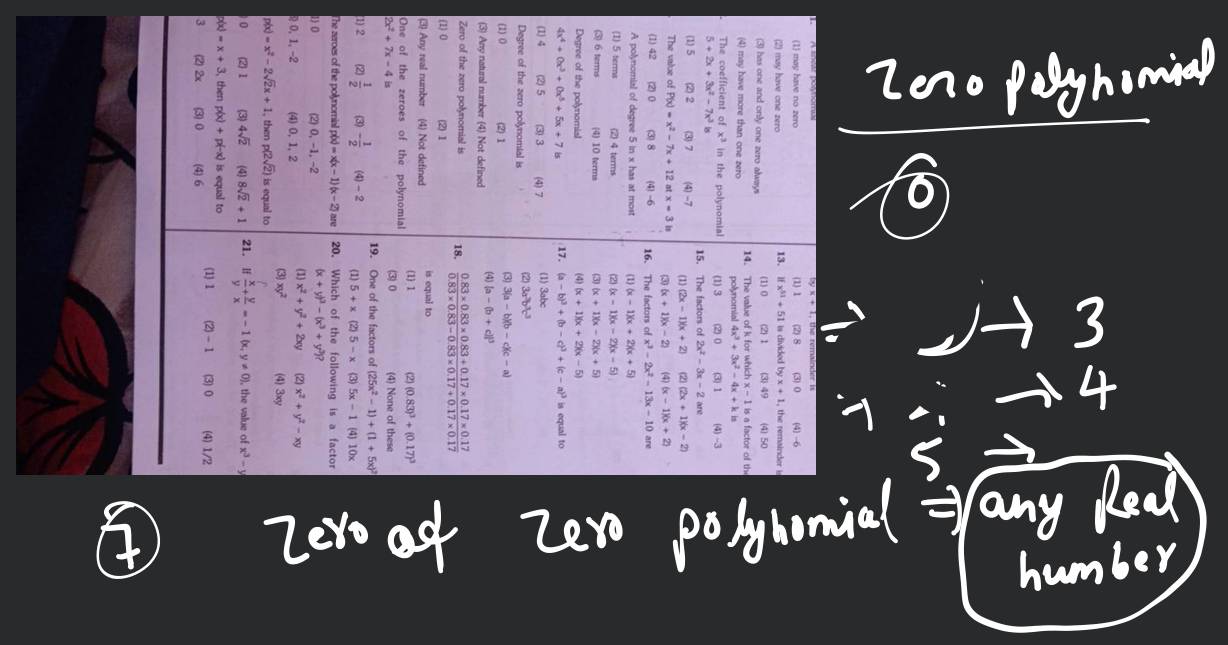 1. A linear polynomial
(1) may have no zero
(2) may have one zero
(3) has one and only one zero always
(4) may have more than one zero
The coefficient of x³ in the polynomial
5 + 2x + 3x² – 7x³ is
(1) 5 (2) 2 (3) 7 (4) –7
The value of P(x) = x² – 7x + 12 at x = 3 is
(1) 42 (2) 0 (3) 8 (4) –6
A polynomial of degree 5 in x has at most
(1) 5 terms (2) 4 terms
(3) 6 terms (4) 10 terms
Degree of the polynomial
4x⁴ + 0x³ + 0x⁵ + 5x + 7 is
(1) 4 (2) 5 (3) 3 (4) 7
Degree of the zero polynomial is
(1) 0 (2) 1
(3) Any natural number (4) Not defined
Zero of the zero polynomial is
(1) 0 (2) 1
(3) Any real number (4) Not defined
One of the zeroes of the polynomial
2x² + 7x – 4 is
(1) 2 (2) 1/2 (3) –1/2 (4) – 2
The zeroes of the polynomial p(x) = x(x – 1) (x – 2) are
1) 0 (2) 0, –1, –2
3) 0, 1, –2 (4) 0, 1, 2
p(x) = x² – 2√2x + 1, then p(2√2) is equal to
) 0 (2) 1 (3) 4√2 (4) 8√2 + 1
p(x) = x + 3, then p(x) + p(–x) is equal to
3 (2) 2x (3) 0 (4) 6
by x + 1, the remainder is
(1) 1 (2) 8 (3) 0 (4) –6
13. If x⁵¹ + 51 is divided by x + 1, the remainder is
(1) 0 (2) 1 (3) 49 (4) 50
14. The value of k for which x – 1 is a factor of the
polynomial 4x³ + 3x² – 4x + k is
(1) 3 (2) 0 (3) 1 (4) –3
15. The factors of 2x² – 3x – 2 are
(1) (2x – 1)(x + 2) (2) (2x + 1)(x – 2)
(3) (x + 1)(x – 2) (4) (x – 1)(x + 2)
16. The factors of x³ – 2x² – 13x – 10 are
(1) (x – 1)(x + 2)(x + 5)
(2) (x – 1)(x – 2)(x – 5)
(3) (x + 1)(x – 2)(x + 5)
(4) (x + 1)(x + 2)(x – 5)
17. (a – b)³ + (b – c)³ + (c – a)³ is equal to
(1) 3abc
(2) 3a³b³c³
(3) 3(a – b)(b – c)(c – a)
(4) [a – (b + c)]³
18. 0.83 × 0.83 × 0.83 + 0.17 × 0.17 × 0.17
0.83 × 0.83 – 0.83 × 0.17 + 0.17 × 0.17
is equal to
(1) 1 (2) (0.83)³ + (0.17)³
(3) 0 (4) None of these
19. One of the factors of (25x² – 1) + (1 + 5x)²
(1) 5 + x (2) 5 – x (3) 5x – 1 (4) 10x
20. Which of the following is a factor
(x + y)³ – (x³ + y³)?
(1) x² + y² + 2xy (2) x² + y² – xy
(3) xy² (4) 3xy
21. If x/y + y/x = – 1 (x, y ≠ 0), the value of x³ – y
(1) 1 (2) – 1 (3) 0 (4) 1/2
Zero polynomial
0
→ 3
→ 4
5 →
7 Zero of Zero polynomial ⇒ any Real
number